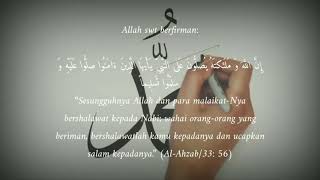 Allah swt berfirman:
إِنَّ اللّٰهَ وَمَلٰٓئِكَتَهٗ يُصَلُّوْنَ عَلَى النَّبِيِّ يٰٓاَيُّهَا الَّذِيْنَ اٰمَنُوْا صَلُّوْا عَلَيْهِ وَ
سَلِّمُوْا تَسْلِيْمًا
"Sesungguhnya Allah dan para malaikat-Nya
bershalawat kepada Nabi; wahai orang-orang yang
beriman, bershalawatlah kamu kepadanya dan ucapkan
salam kepadanya." (Al-Ahzab/33: 56)